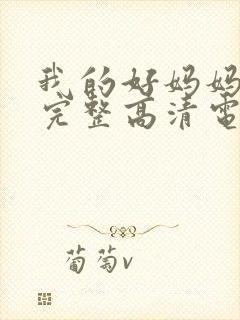 我的好妈妈
完整高清電
葡萄v